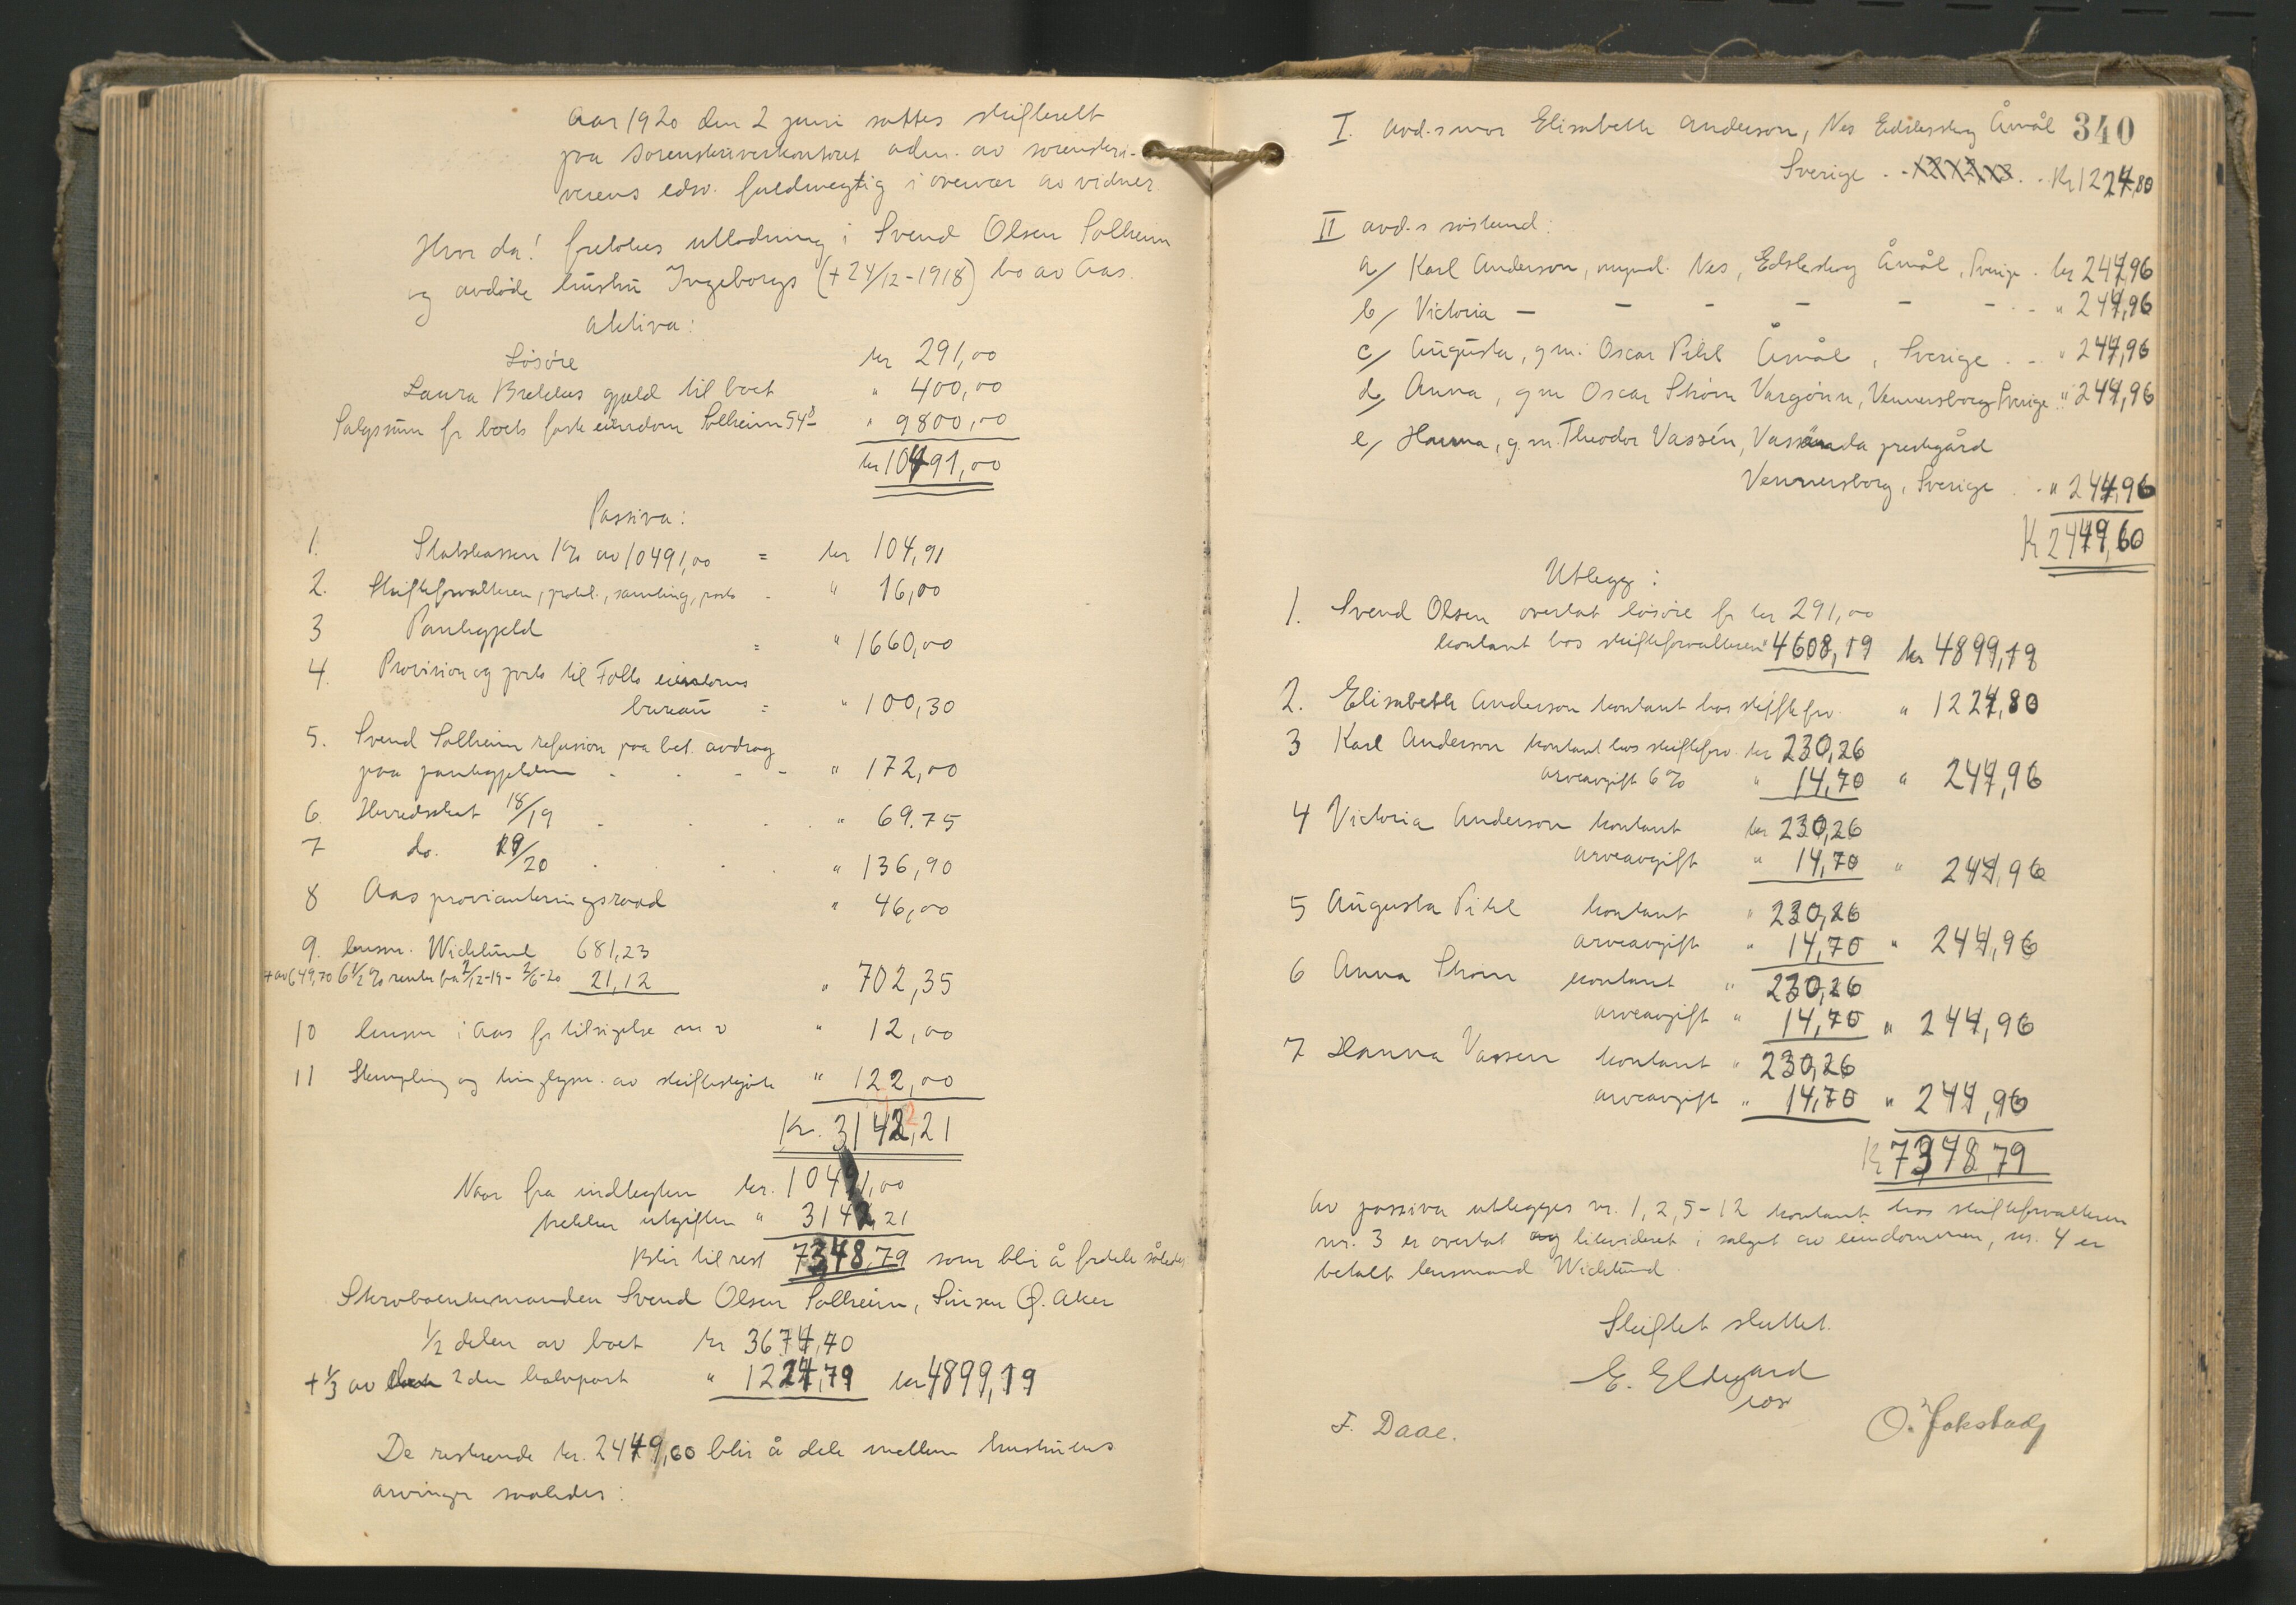 Aar 1920 den 2 juni sattes skifterett
paa sorenskriverkontoret adm. av sorenskri-
verens edsv. fuldmegtig i overvær av vidner.
Hvor da! foretokes utlodning i Svend Olsen Solheim
og avdøde hustru Ingeborgs (+ 24/12-1918) bo av Aas.
Aktiva:
Løsøre kr 291,00
Laura Brekkes gjeld til boet " 400,00
Salgssum fr boets faste eiendom Solheim 54 " 9800,00
kr 10491,00
Passiva:
1. Statskassen 1% av 10491,00 = kr 104,91
2. Skifteforvalteren, protok., samling, porto - " 16,00
3 Pantegjeld = " 1660,00
4. Provision og porto til Follo eiendoms
bureau = " 100,30
5. Svend Solheim refusion paa bet. avdrag
paa pantegjelden - - - " 172,00
6. Herredsskat 18/19 . . . " 69.75
7 do. 19/20 . . . " 136,90
8 Aas provianteringsraad " 46,00
9. lensm. Wicklund 681,23
+ av 649,70 6½% rente fra 2/12-19 - 2/6-20 21,12 " 702,35
10 lensm i Aas for tilsigelse m v " 12,00
11 Stempling og tinglysn. av skifteskjøte " 122,00
Kr. 3142,21
Naar fra indtægten kr. 10491,00
trekkes utgiften " 3142,21
Blir til rest 7348,79 som bli å fordele således
Skraboenkemanden Svend Olsen Solheim, Sinsen Ø. Aker
1/2 delen av boet kr 3674,40
+ 1/3 av 2den halvpart " 1224,79 kr 4899,19
De resterende kr. 2449,60 blir å dele mellem hustruens
arvinger saaledes:
340
I. Avd.s mor Elisabeth Anderson, Nes Edsleskog Åmål
Sverige . - . - Kr 1224,80
II avd.s søskend:
a/ Karl Anderson, Nes, Edsleskog Åmål, Sverige . kr 244,96
b/ Victoria — — — - — - - . . - " 244,96
c/ Augusta, g.m. Oscar Pihl Åmål, Sverige . . - " 244,96
d/ Anna, g m Oscar Strøm Vargönn, Vennersborg Sverige " 244,96
e/ Hanna, g.m. Theodor Vassén, Vassända prestgård
Vennersborg, Sverige . - " 244,96
K 2449,60
Utlegg:
1. Svend Olsen overtat løsøre fr kr 291,00
kontant hos skifteforvalteren " 4608,19 kr 4899,19
2. Elisabeth Anderson kontant hos skiftefor. " 1224,80
3 Karl Anderson kontant hos skiftefor. kr 230,26
arveavgift 6% " 14,70 " 244,96
4 Victoria Anderson kontant kr 230,26
arveavgift " 14,70 " 244,96
5 Augusta Pihl kontant " 230,26
arveavgift " 14,70 " 244,96
6 Anna Strøm kontant " 230,26
arveavgift " 14,70 " 244,96
7 Hanna Vassen kontant " 230,26
arveavgift " 14,70 " 244,96
K 7348,79
Av passiva utlegges nr. 1, 2, 5-12 kontant hos skifteforvalteren
nr. 3 er overtat og likvideret i salget av eiendommen, nr. 4 er
betalt lensmand Wicklund
Skiftet sluttet.
E. Eldegard
F. Daae. O. Jokstad